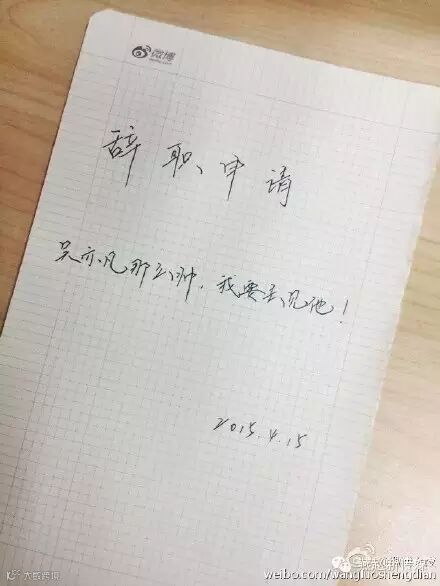 微博
辞职申请
吴亦凡那么帅，我要去见他！
2015.4.15
weibo.com/wangluoshengdian
大数跨境